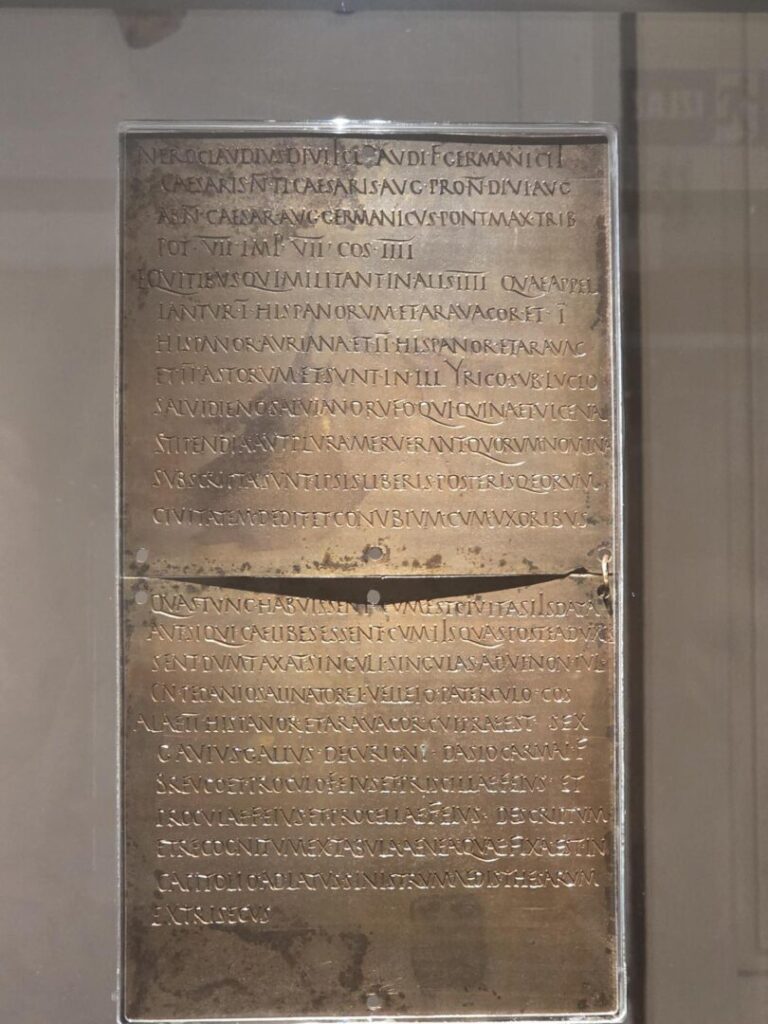 NERO CLAUDIUS DIVI CLAUDI F GERMANICI
CAESARIS N̄ TI CAESARIS AVG · PRON̄ DIVI AVG
ABN̄ · CAESAR · AVG · GERMANICVS · PONT MAX · TRIB
POT · V̅I̅I̅ · IMP · V̅I̅I̅ · COS · I̅I̅I̅I̅
EQVITIBVS QVI MILITANT IN ALIS I̅I̅I̅I̅ QVAE APPEL
LANTVR · I̅ · HISPANORVM ET ARAVACOR ET · I̅
HISPANOR AVRIANA ET I̅I̅ · HISPANOR ET ARAVAC
ET SVNT · IN ILLYRICO · SVB LVCIO
SALVIDIENO SALVIANO RVFO QVI QVINA ET VICENA
STIPENDIA AVT PLVRA MERVERANT QVORVM NOMINA
SVBSCRIPTA SVNT IPSIS LIBERIS POSTERISQ EORVM
CIVITATEM DEDIT ET CONVBIVM CVM VXORIBVS
QVAS TVNC HABVISSENT CVM EST CIVITAS IIS DATA
AVT SIQVI CAELIBES ESSENT CVM IIS QVAS POSTEA DVXIS
SENT DVMTAXAT SINGVLI SINGVLAS A D V NON IVL
CN PEDANIO SALINATORE L VELLEIO PATERCVLO · COS
ALAE I̅I̅ HISPANOR ET ARAVACOR CVI PRAEEST · SEX
GAVIVS GALLVS · DECVRIONI · DASIO CARMAI · F
BREVCO ET PROCVLO F EIVS ET PRISCILLAE F EIVS · ET
PROCVLAE F EIVS ET PROCELLAE F EIVS · DESCRIPTVM
ET RECOGNITVM EX TABVLA AENEA QVAE FIXA EST IN
CAPITOLIO AD LATVS SINISTRVM AEDIS THESARVM
EXTRISECVS